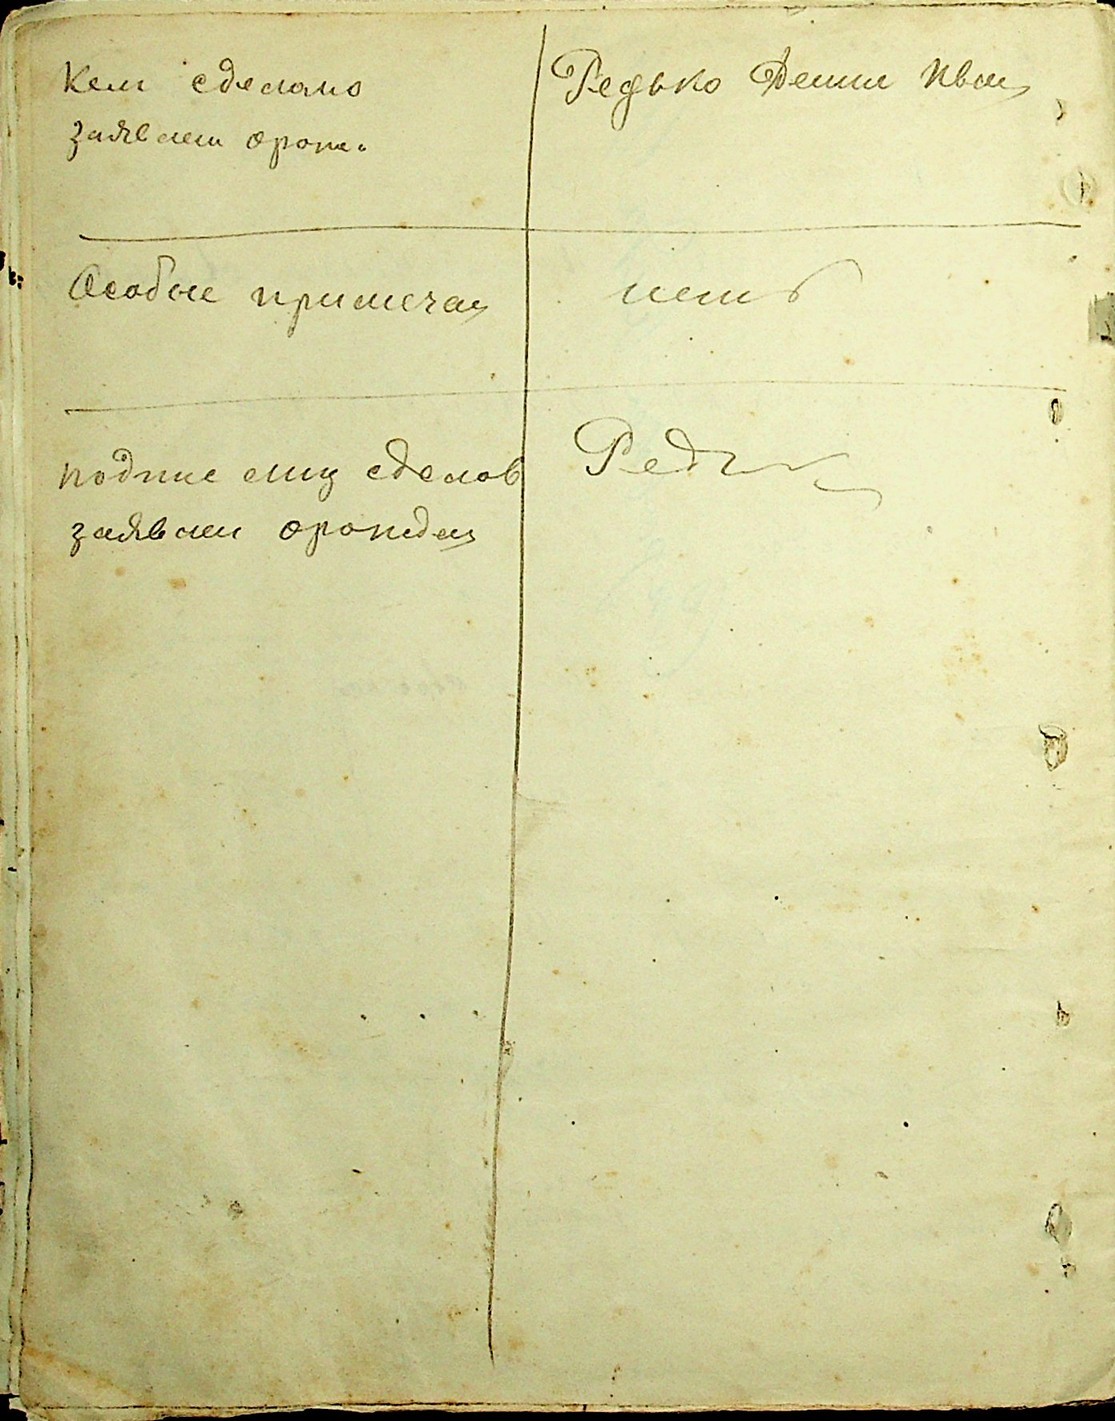 Кем сделано
заявлен о рожд.
Редько Деми Иван
Особые примечан
нетъ
подпис лиц сделав
заявлен о рожден
Редь